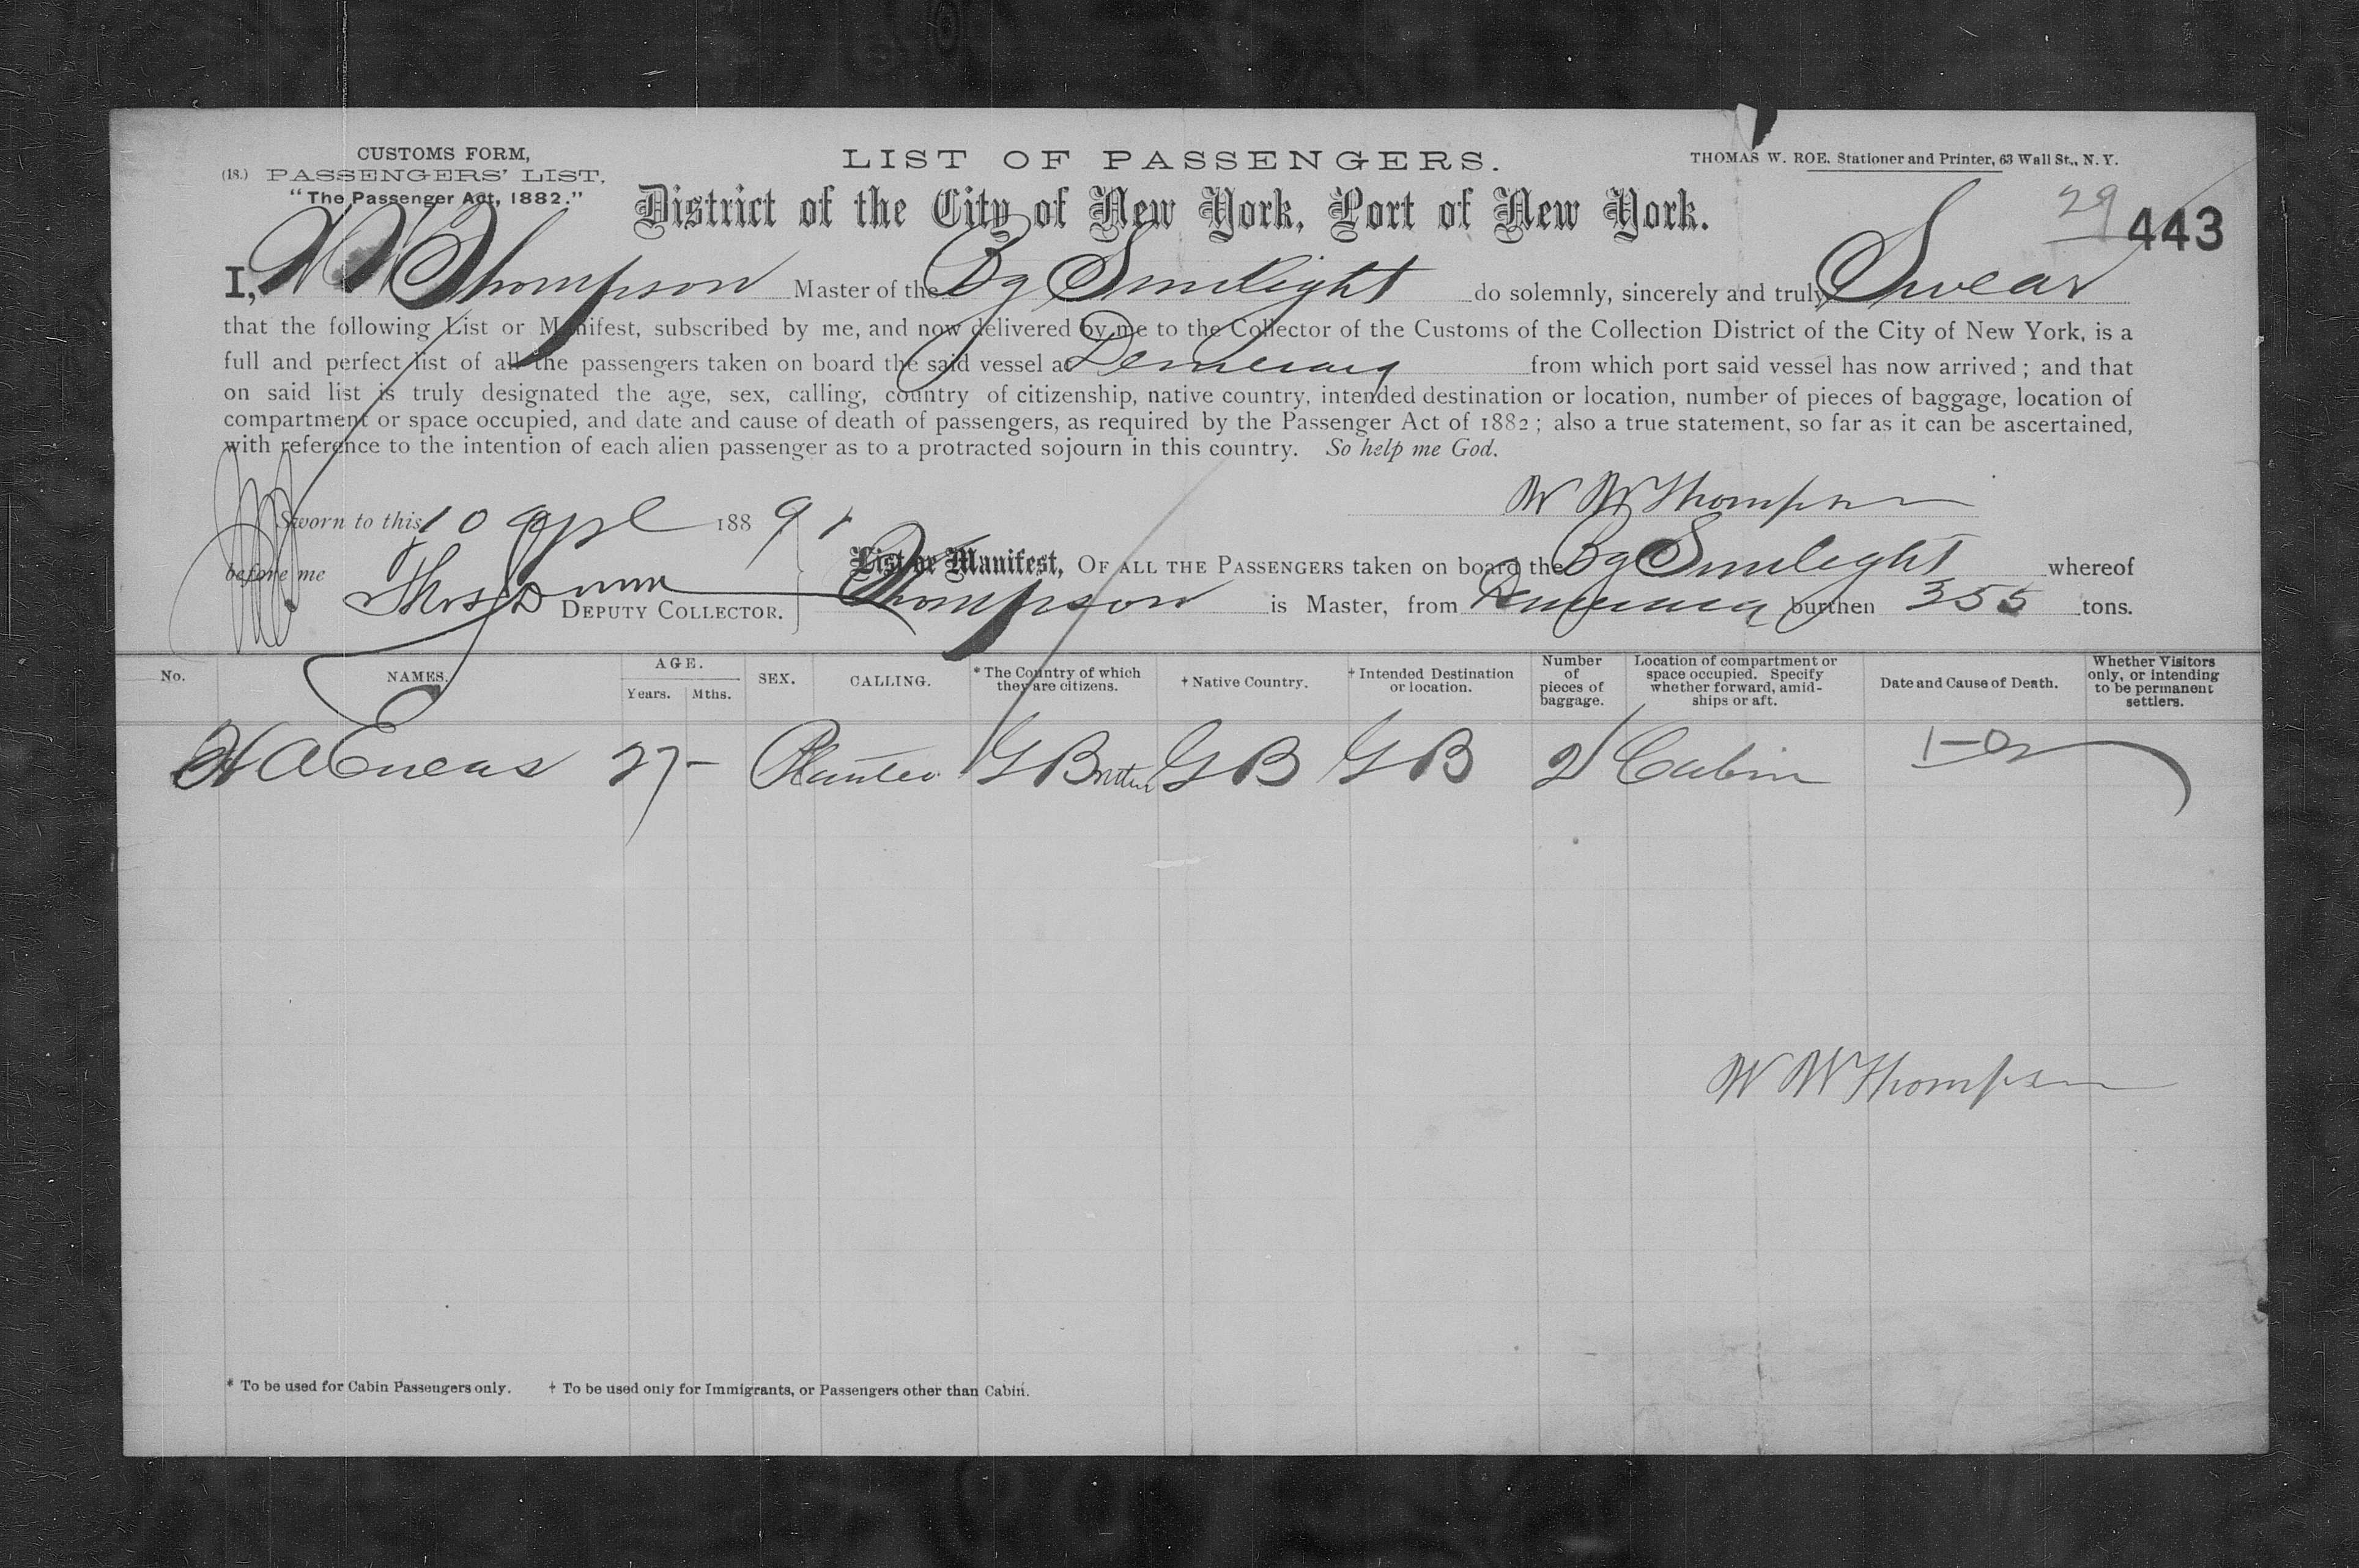 CUSTOMS FORM,
(18.) PASSENGERS' LIST.
"The Passenger Act, 1882."
LIST OF PASSENGERS.
THOMAS W. ROE, Stationer and Printer, 63 Wall St., N.Y.
District of the City of New York, Port of New York.
29
443
I, W W Thompson Master of the Bg Sunlight do solemnly, sincerely and truly Swear
that the following List or Manifest, subscribed by me, and now delivered by me to the Collector of the Customs of the Collection District of the City of New York, is a
full and perfect list of all the passengers taken on board the said vessel at Demerara from which port said vessel has now arrived; and that
on said list is truly designated the age, sex, calling, country of citizenship, native country, intended destination or location, number of pieces of baggage, location of
compartment or space occupied, and date and cause of death of passengers, as required by the Passenger Act of 1882; also a true statement, so far as it can be ascertained,
with reference to the intention of each alien passenger as to a protracted sojourn in this country. So help me God.
W W Thompson
Sworn to this 10 Apl 1889 1
before me Thos Dunn DEPUTY COLLECTOR.
List or Manifest, OF ALL THE PASSENGERS taken on board the Bg Sunlight whereof
Thompson is Master, from Demerara burthen 355 tons.
No. NAMES. AGE. Years. Mths. SEX. CALLING. * The Country of which they are citizens. † Native Country. † Intended Destination or location. Number of pieces of baggage. Location of compartment or space occupied. Specify whether forward, amidships or aft. Date and Cause of Death. Whether Visitors only, or intending to be permanent settlers.
H A Eneas 27 - Planter G B G B G B 2 Cabin
W W Thompson
* To be used for Cabin Passengers only. † To be used only for Immigrants, or Passengers other than Cabin.